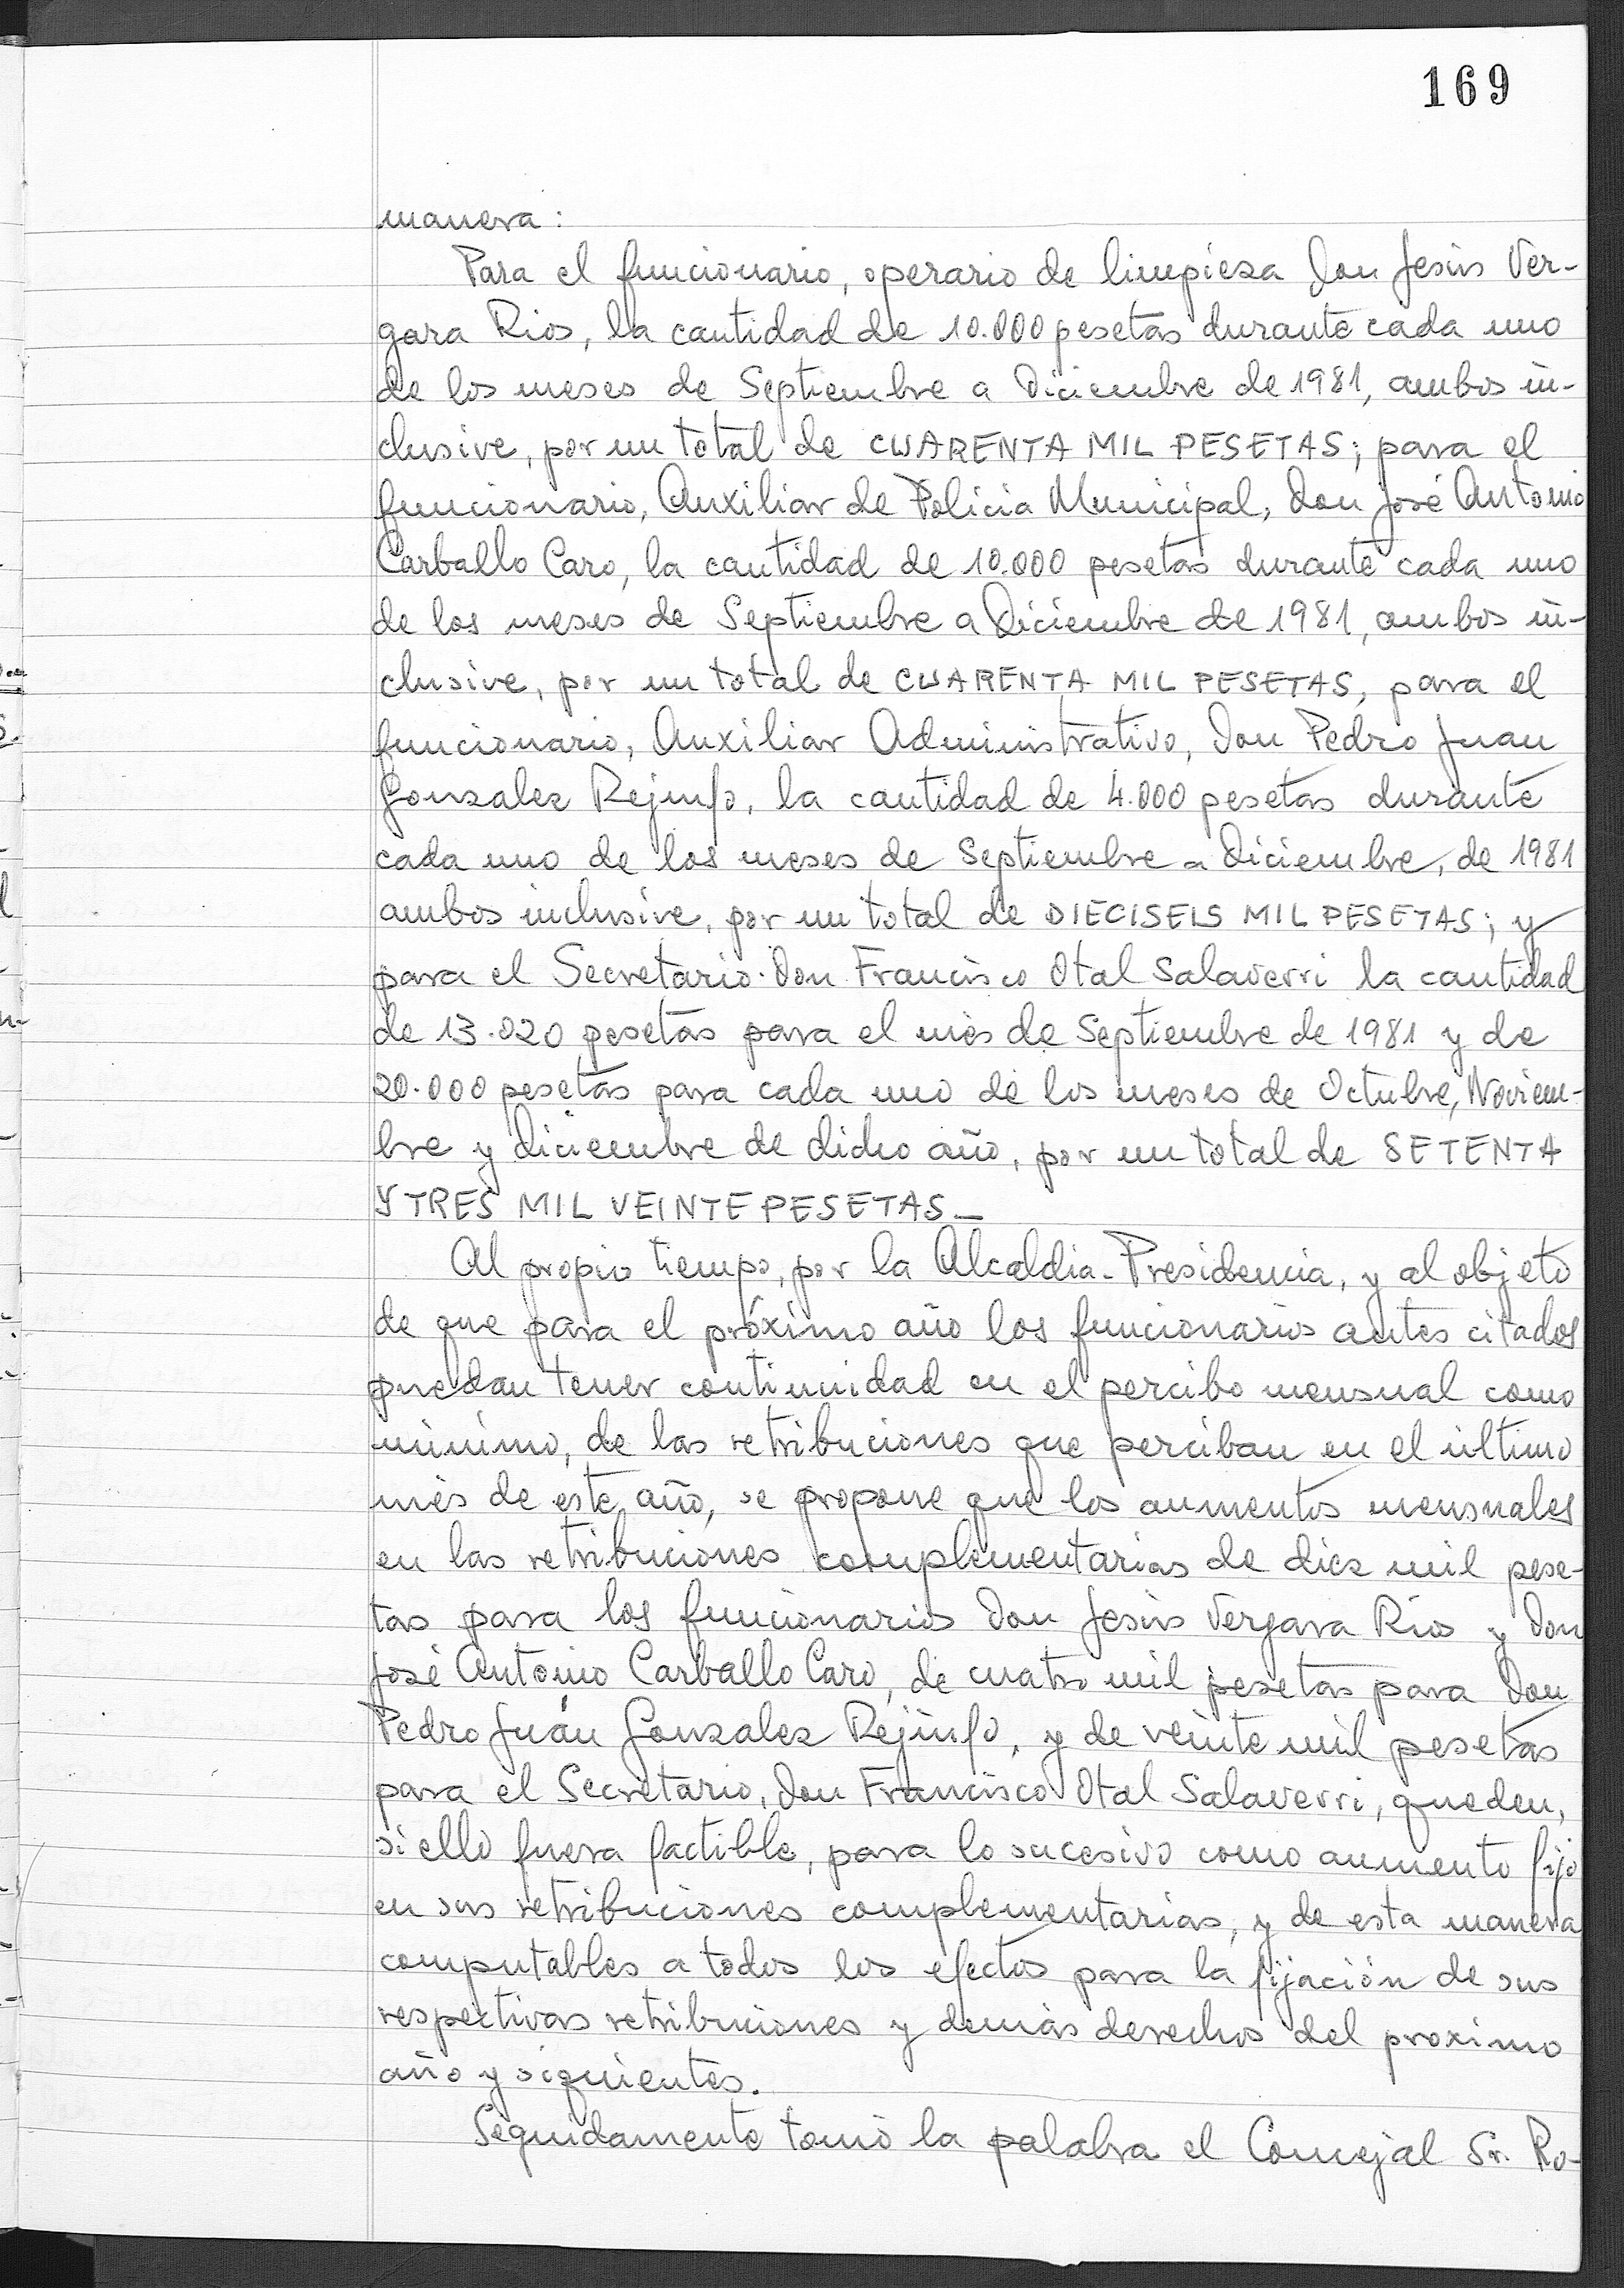 169
manera:
Para el funcionario, operario de limpieza Don Jesús Ver-
gara Rios, la cantidad de 10.000 pesetas durante cada uno
de los meses de Septiembre a Diciembre de 1981, ambos in-
clusive, por un total de CUARENTA MIL PESETAS; para el
funcionario, Auxiliar de Policia Municipal, Don José Antonio
Carballo Caro, la cantidad de 10.000 pesetas durante cada uno
de los meses de Septiembre a Diciembre de 1981, ambos in-
clusive, por un total de CUARENTA MIL PESETAS, para el
funcionario, Auxiliar Administrativo, Don Pedro Juan
Gonzalez Rejinfo, la cantidad de 4.000 pesetas durante
cada uno de los meses de Septiembre a Diciembre, de 1981
ambos inclusive, por un total de DIECISEIS MIL PESETAS; y
para el Secretario Don Francisco Otal Salaverri la cantidad
de 13.020 pesetas para el mes de Septiembre de 1981 y de
20.000 pesetas para cada uno de los meses de Octubre, Noviem-
bre y diciembre de dicho año, por un total de SETENTA
Y TRES MIL VEINTE PESETAS_
Al propio tiempo, por la Alcaldia-Presidencia, y al objeto
de que para el próximo año los funcionarios antes citados
puedan tener continuidad en el percibo mensual como
minimo, de las retribuciones que perciban en el último
més de este año, se propone que los aumentos mensuales
en las retribuciones complementarias de diez mil pese-
tas para los funcionarios Don Jesús Vergara Rios y Don
José Antonio Carballo Caro, de cuatro mil pesetas para Don
Pedro Juán Gonzalez Rejinfo, y de veinte mil pesetas
para el Secretario, Don Francisco Otal Salaverri, queden,
si ello fuera factible, para lo sucesivo como aumento fijo
en sus retribuciones complementarias, y de esta manera
computables a todos los efectos para la fijación de sus
respectivas retribuciones y demás derechos del proximo
año y siguientes.
Seguidamente tomó la palabra el Concejal Sr. Ro-